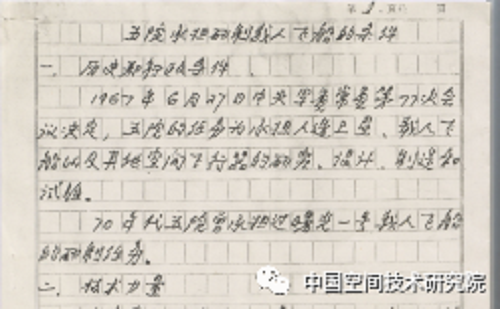 第 1 页
五院承担研制载人飞船的条件
一、历史和行政条件、
1967年6月27日中央军委常委第77次会
议决定,五院的任务为承担人造卫星、载人飞
船以及其他空间飞行器的研究、设计、制造和
试验。
70年代五院曾承担过曙光一号载人飞船
的研制任务。
二、技术力量
中国空间技术研究院